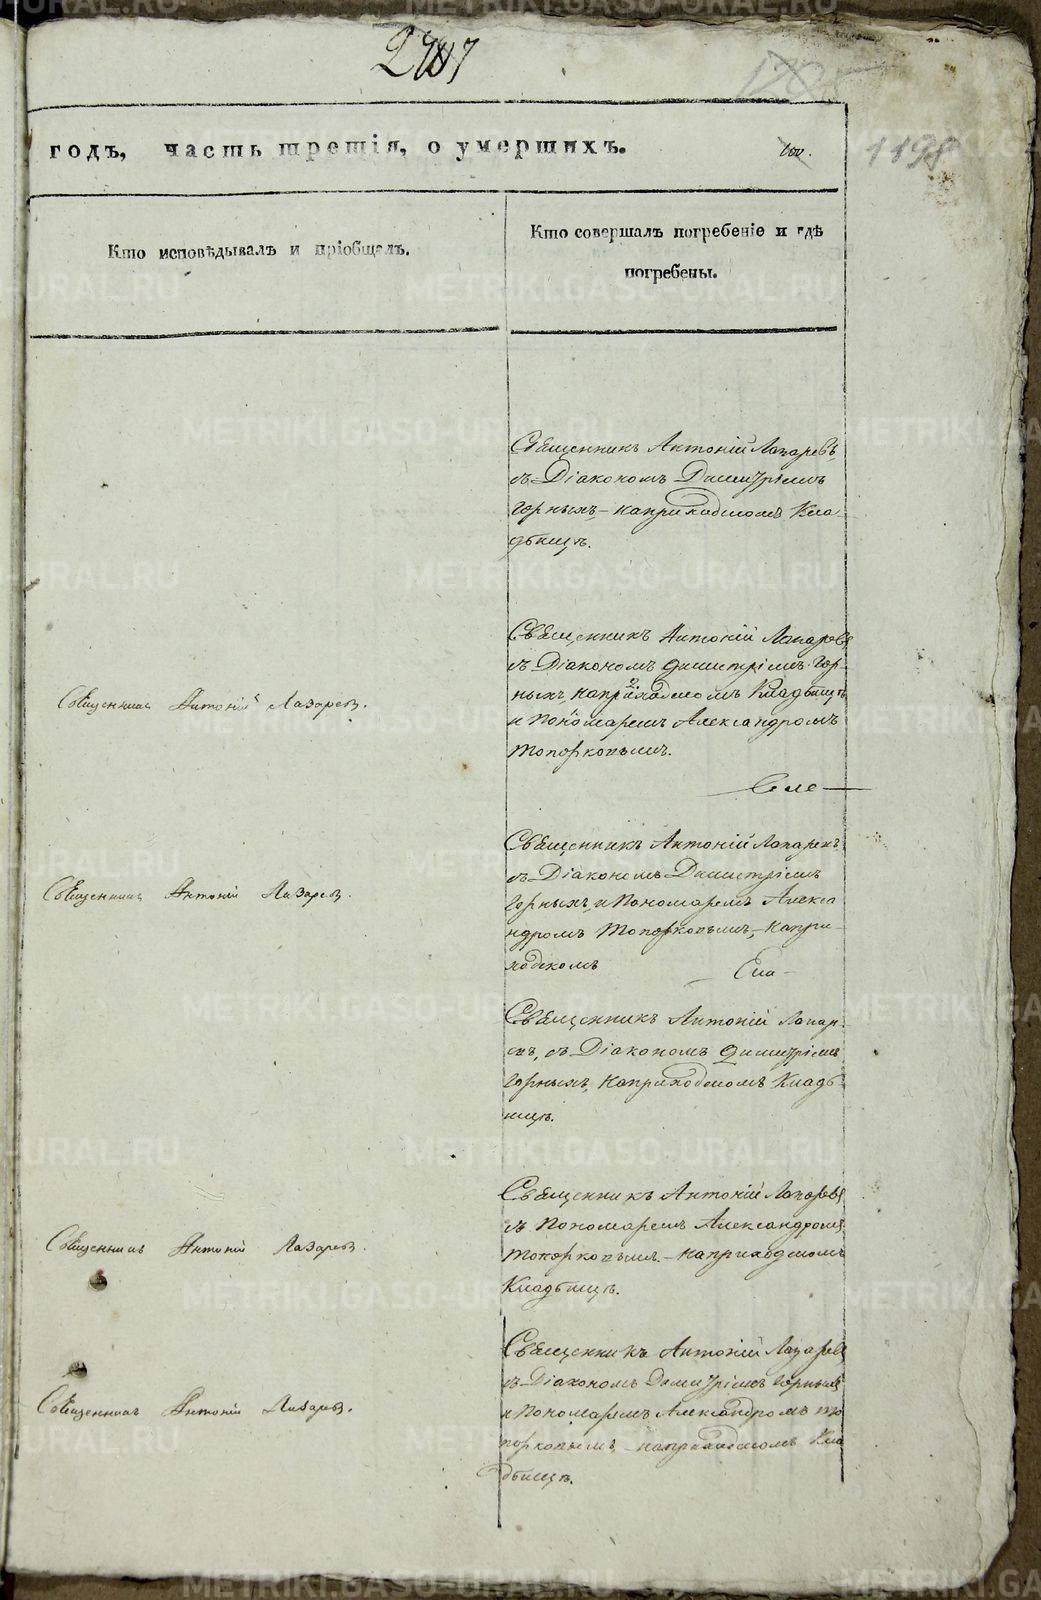 годъ, часть третія, о умершихъ.
1198
Кто исповѣдывалъ и пріобщалъ.
Кто совершалъ погребеніе и гдѣ
погребены.
Священникъ Антоній Лазаревъ,
съ Діакономъ Димитріемъ
Горныхъ, на приходскомъ Кла-
дбищѣ.
Священникъ Антоній Лазаревъ
съ Діакономъ Димитріемъ Гор-
ныхъ, на приходскомъ Кладбищѣ
и Пономаремъ Александромъ
Топорковымъ.
Священникъ Антоній Лазаревъ.
Священникъ Антоній Лазаревъ
съ Діакономъ Димитріемъ
Горныхъ, и Пономаремъ Алекса
ндромъ Топорковымъ, на при-
ходскомъ
Священникъ Антоній Лазаревъ.
Священникъ Антоній Лазар-
евъ, съ Діакономъ Димитріемъ
Горныхъ, на приходскомъ Кладб-
ищѣ.
Священникъ Антоній Лазаревъ
съ Пономаремъ Александромъ
Топорковымъ. - на приходскомъ
Кладбищѣ.
Священникъ Антоній Лазаревъ.
Священникъ Антоній Лазаревъ
съ Діакономъ Димитріемъ Горныхъ
и Пономаремъ Александромъ То
порковымъ, на приходскомъ Кла
дбищѣ.
Священникъ Антоній Лазаревъ.
METRIKI.GASO-URAL.RU